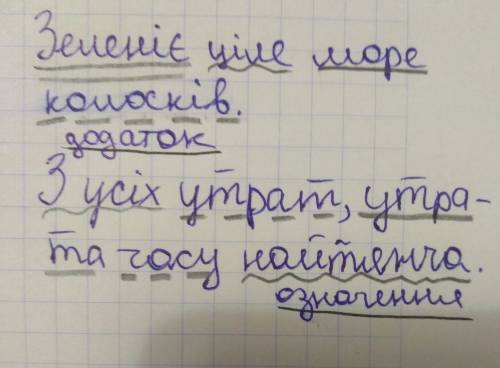 Зеленіє ціле море
колосків.
додаток
З усіх утрат, утра-
та часу найтяжча.
означення